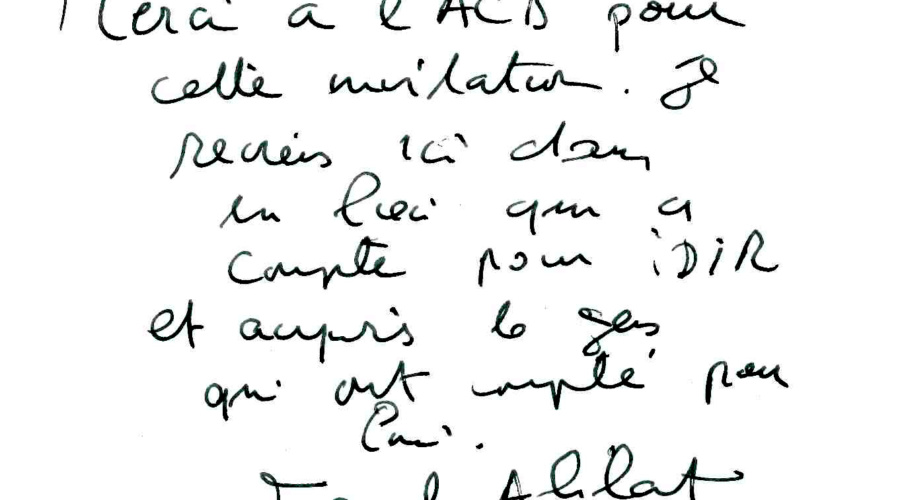 Merci à l'ACB pour
cette invitation. Je
reviens ici dans
un lieu qui a
compté pour iDiR
et auprès de gens
qui ont compté pour
lui.